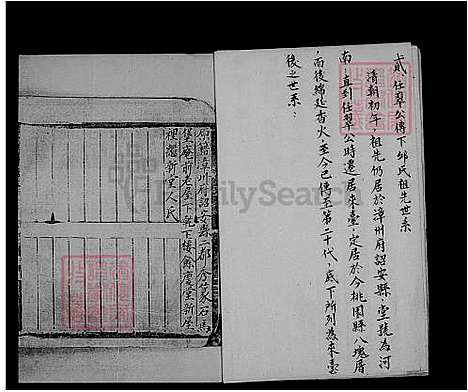 貳、任翠公傳下邱氏祖先世系
清朝初年，祖先仍居於漳州府詔安縣，堂號為河
南，直到任翠公時遷居來臺，定居於今桃園縣八塊厝
，而後綿延香火至今已傳至第二十代，底下所列為來臺
後之世系：
原籍漳州府詔安縣二都秀篆石馬
堡庵前老屋下乾下樓餘慶堂新屋
裡想新堂人氏
FamilySearch